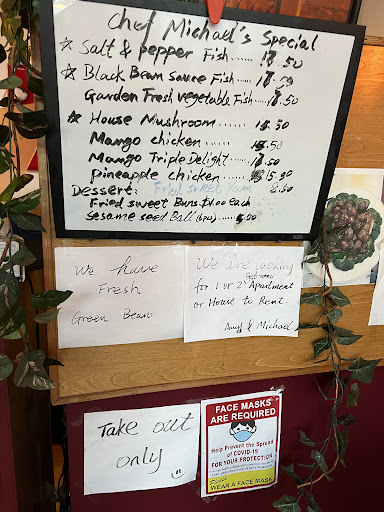 Chef Michael's Special
☆ Salt & pepper Fish ..... 17.50
☆ Black Bean sauce Fish .....
Garden Fresh vegetable Fish .... 17.50
☆ House Mushroom ........ .50
Mango chicken ....... .50
Mango Triple Delight ..... .50
pineapple chicken ..... 15.50
Dessert: Fried sweet Yam 8.50
Fried sweet Buns $1.00 Each
Sesame seed Ball (6pcs) ..... 5.00
We have
Fresh
Green Bean
We are looking
for 1 or 2 Bedroom Apartment
or House to Rent.
Amy & Michael
Take out
only
FACE MASKS
ARE REQUIRED
Help Prevent the Spread
of COVID-19
FOR YOUR PROTECTION
WEAR A FACE MASK